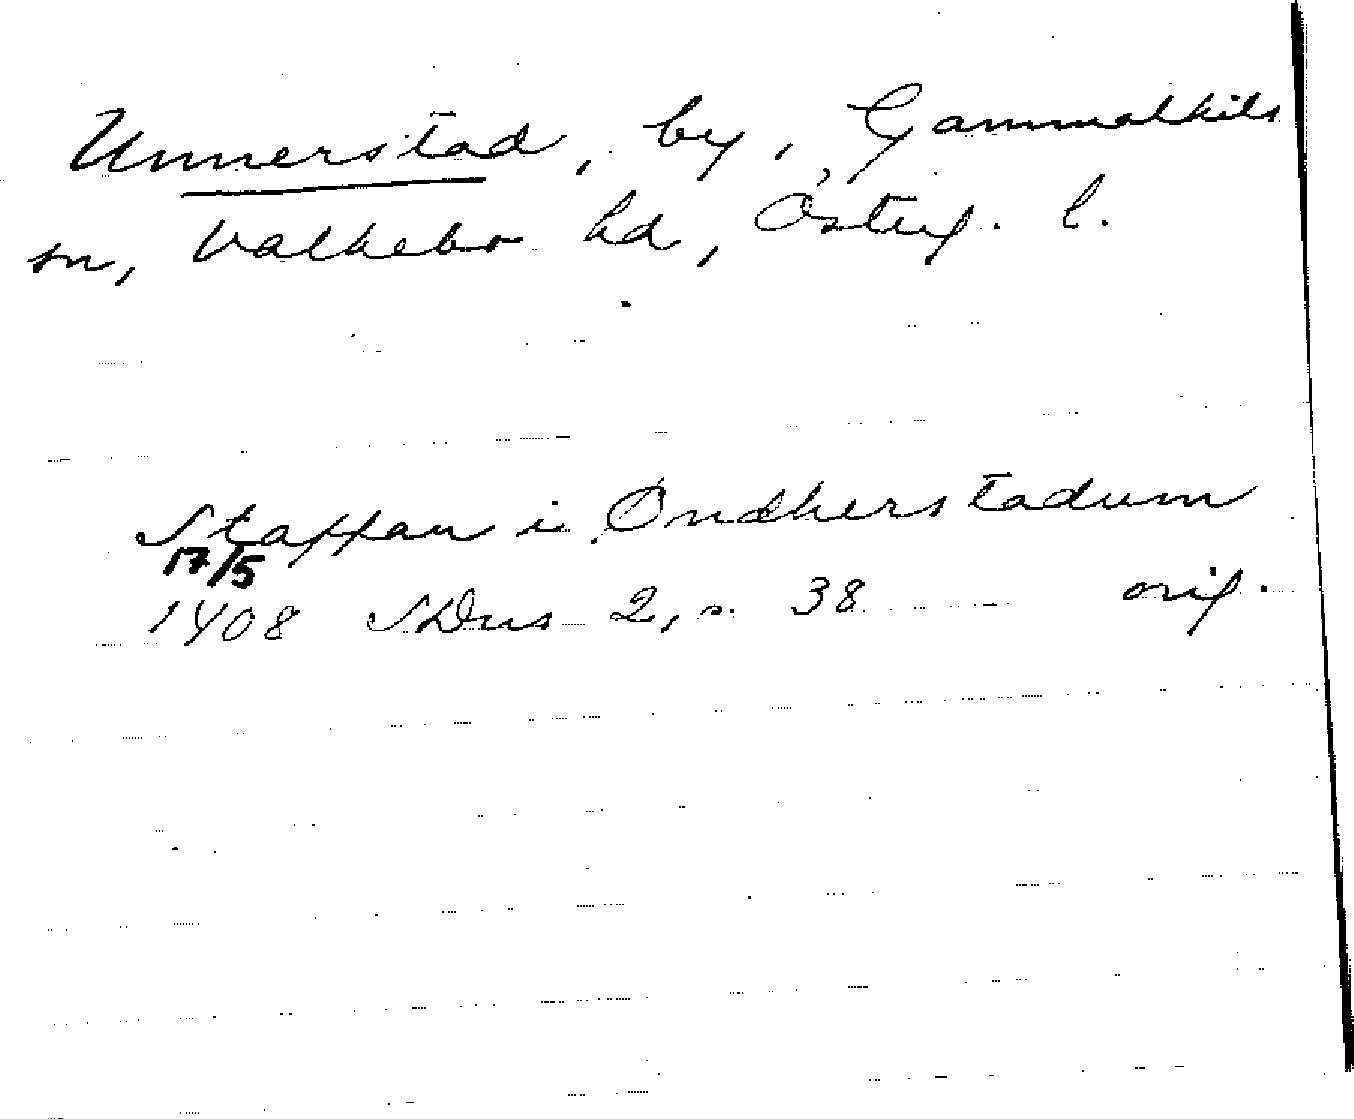 Unnerstad, by, Gammalkils
sn, Valkebo hd, Östug. l.
Staffan i Ondherstadum
17/5
1408 SDns 2, s. 38 orig.